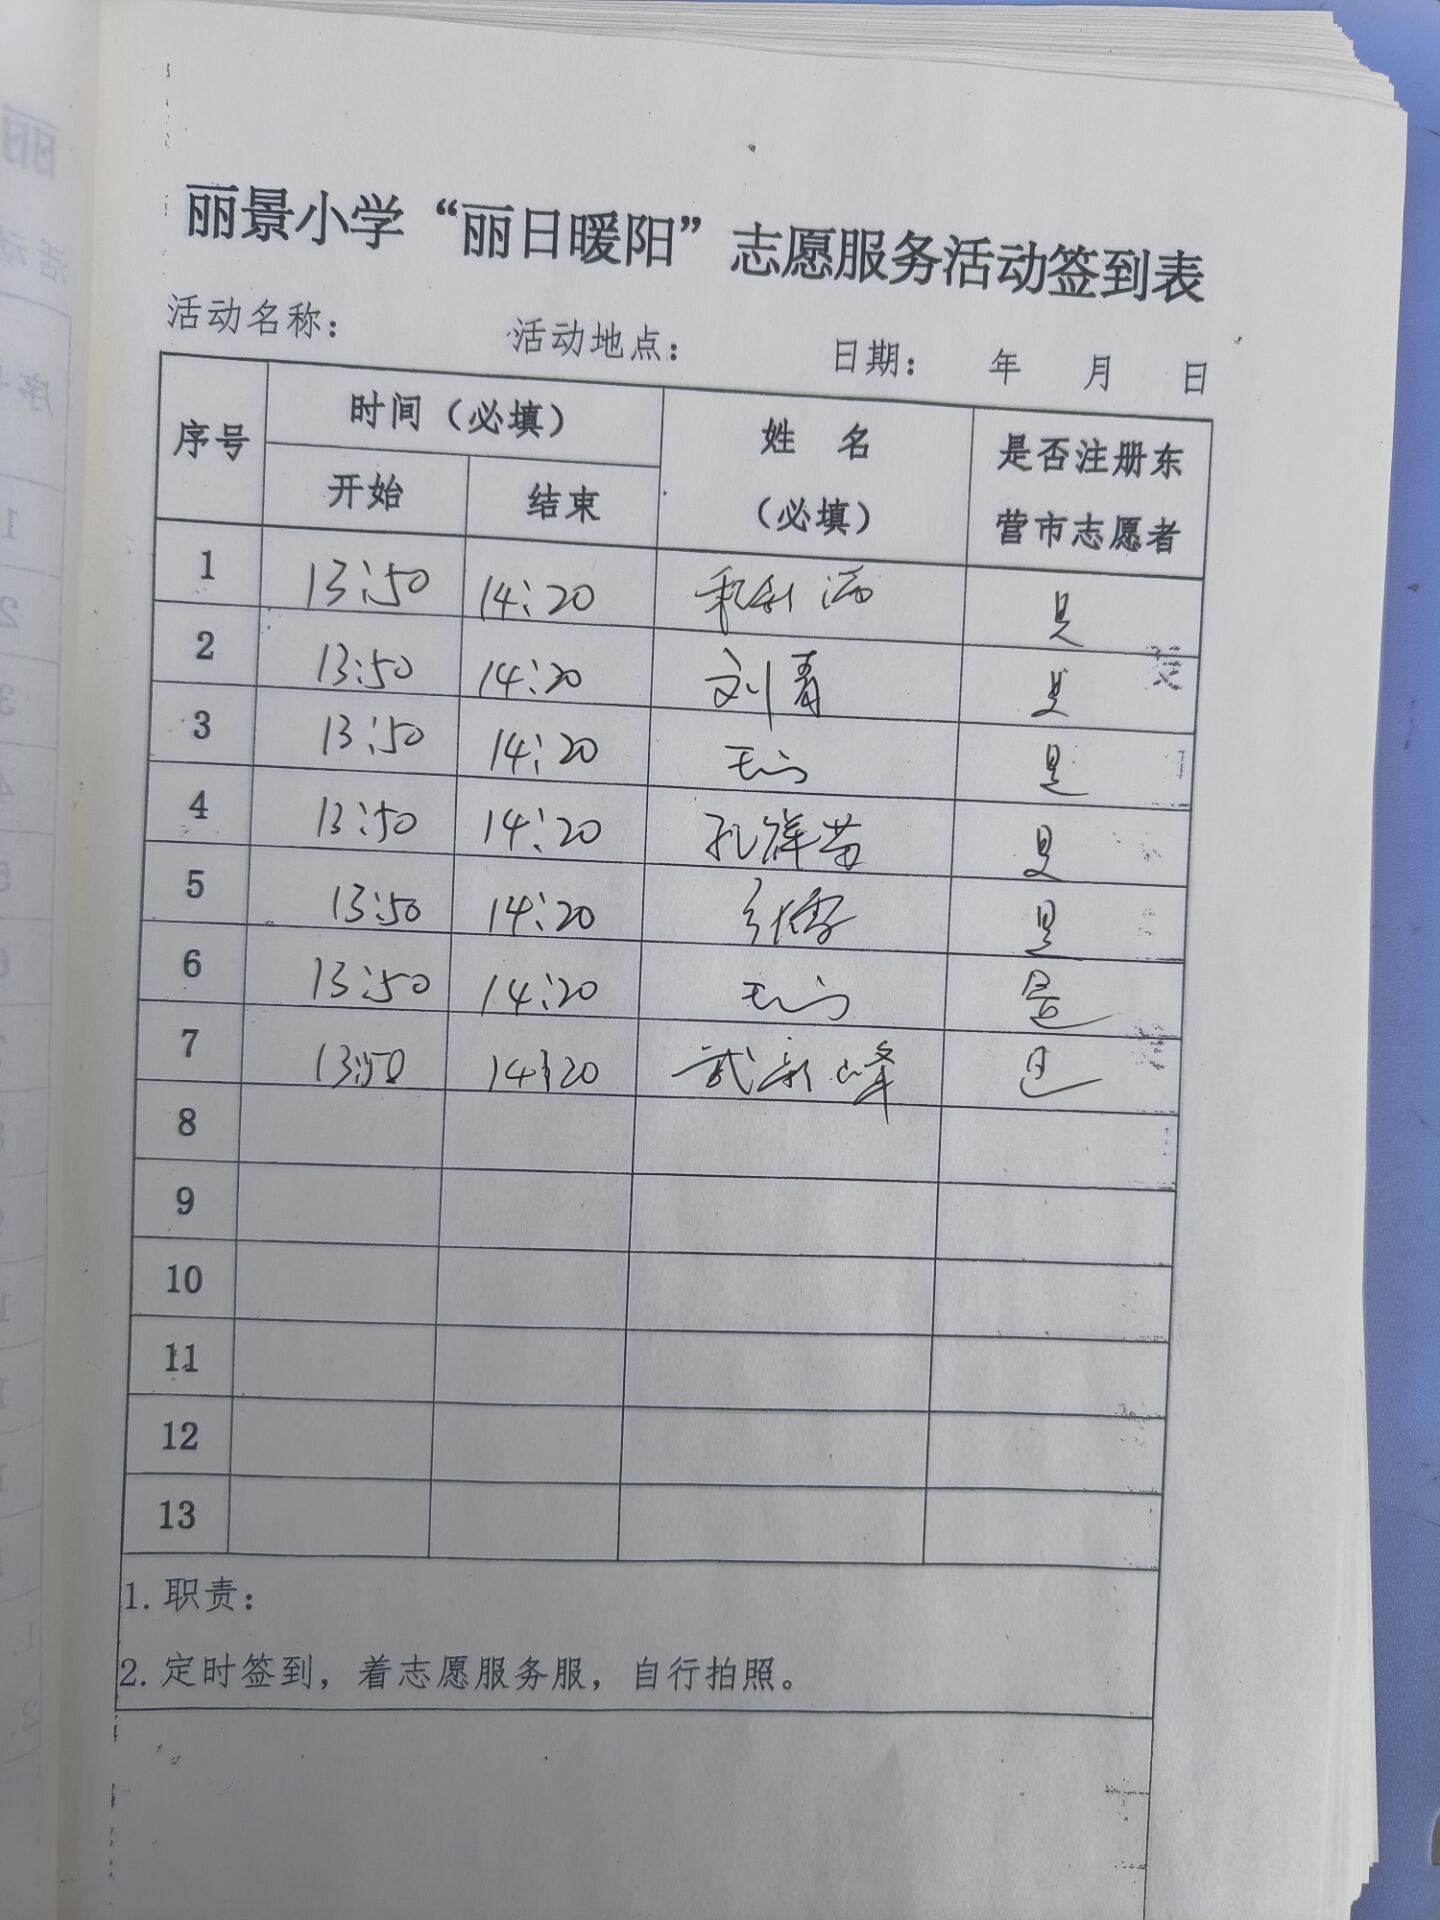 丽景小学“丽日暖阳”志愿服务活动签到表
活动名称： 活动地点： 日期： 年 月 日
序号 时间（必填） 姓 名（必填） 是否注册东营市志愿者
开始 结束
1 13:50 14:20 是
2 13:50 14:20 刘青 是
3 13:50 14:20 是
4 13:50 14:20 孔祥苗 是
5 13:50 14:20 是
6 13:50 14:20 是
7 13:50 14:20 武新峰 是
8
9
10
11
12
13
1.职责：
2.定时签到，着志愿服务服，自行拍照。